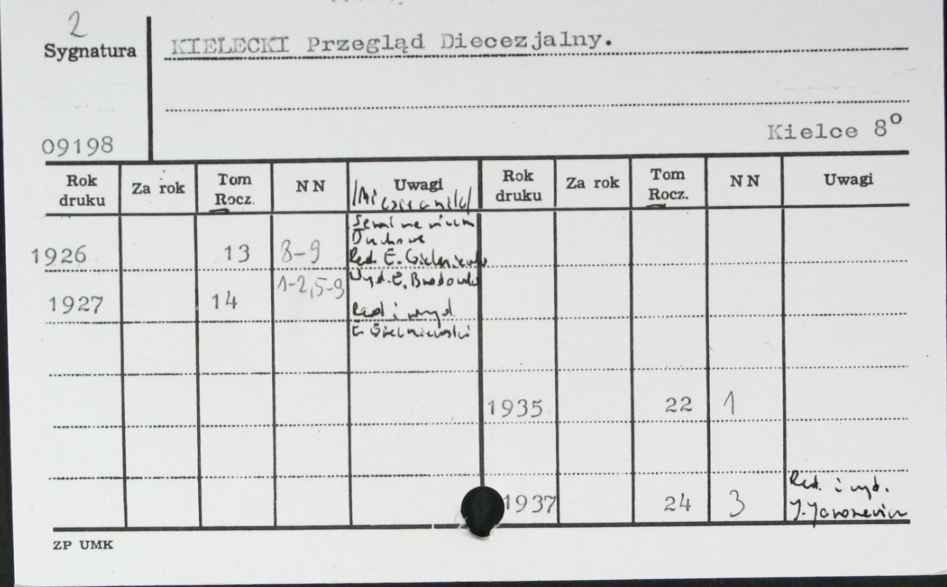 2
Sygnatura
KIELECKI Przegląd Diecezjalny.
Kielce 8°
09198
Rok druku Za rok Tom Rocz. NN Uwagi Rok druku Za rok Tom Rocz. NN Uwagi
/Miesięcznik/
Seminarium
Duchowne
1926 13 8-9 Red. E.
1-2, 5-9 Wyd. E.
1927 14 Red i wyd
E
1935 22 1
Red. i wyd.
1937 24 3 J.
ZP UMK